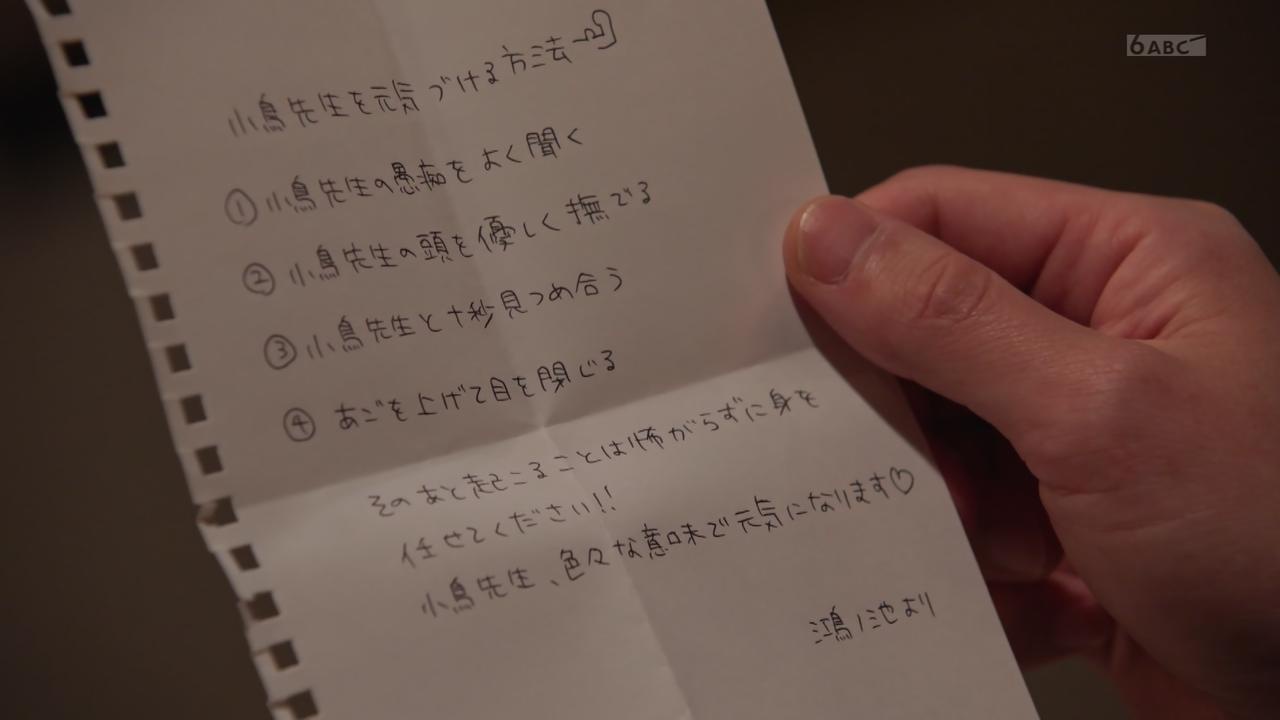 6ABC
小鳥先生を元気づける方法
①小鳥先生の愚痴をよく聞く
②小鳥先生の頭を優しく撫でる
③小鳥先生と十秒見つめ合う
④あごを上げて目を閉じる
そのあと起こることは怖がらずに身を
任せてください!!
小鳥先生、色々な意味で元気になります♡
鴻ノ池より